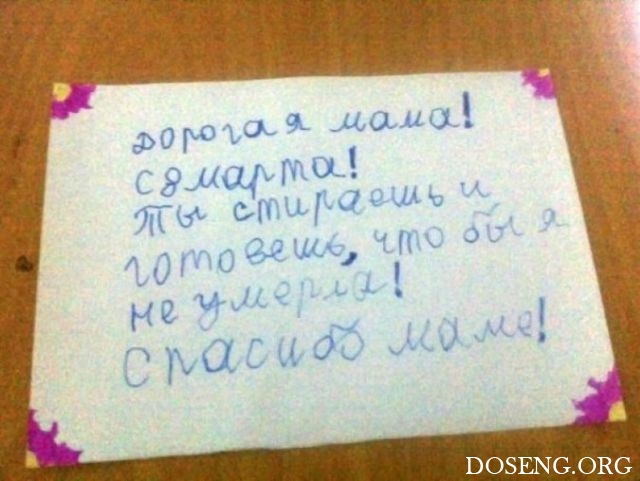 дорогая мама!
С 8 марта!
Ты стираешь и
готовешь, что бы я
не умерла!
Спасибо маме!
DOSENG.ORG